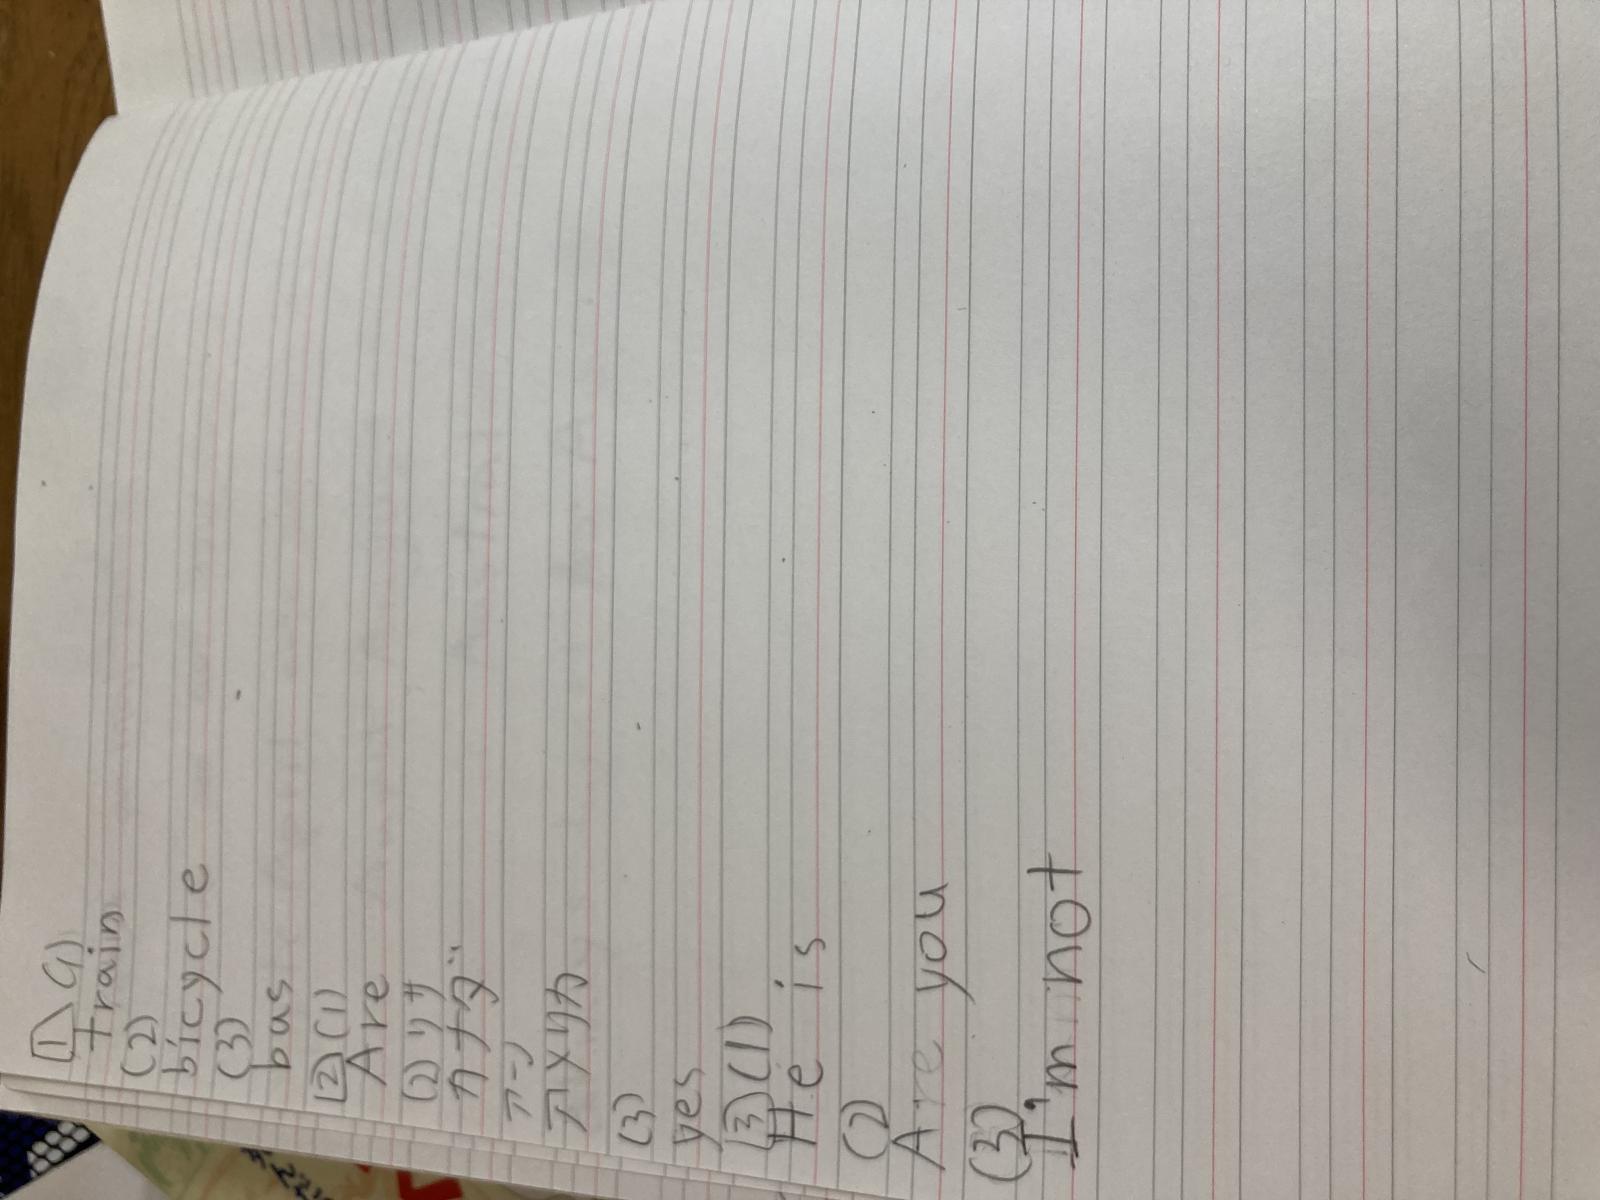 1 (1)
train
(2)
bicycle
(3)
bus
2 (1)
Are
(2) リサ
カナダ
アメリカ
(3)
yes
3 (1)
He is
(2)
Are you
(3)
I'm not